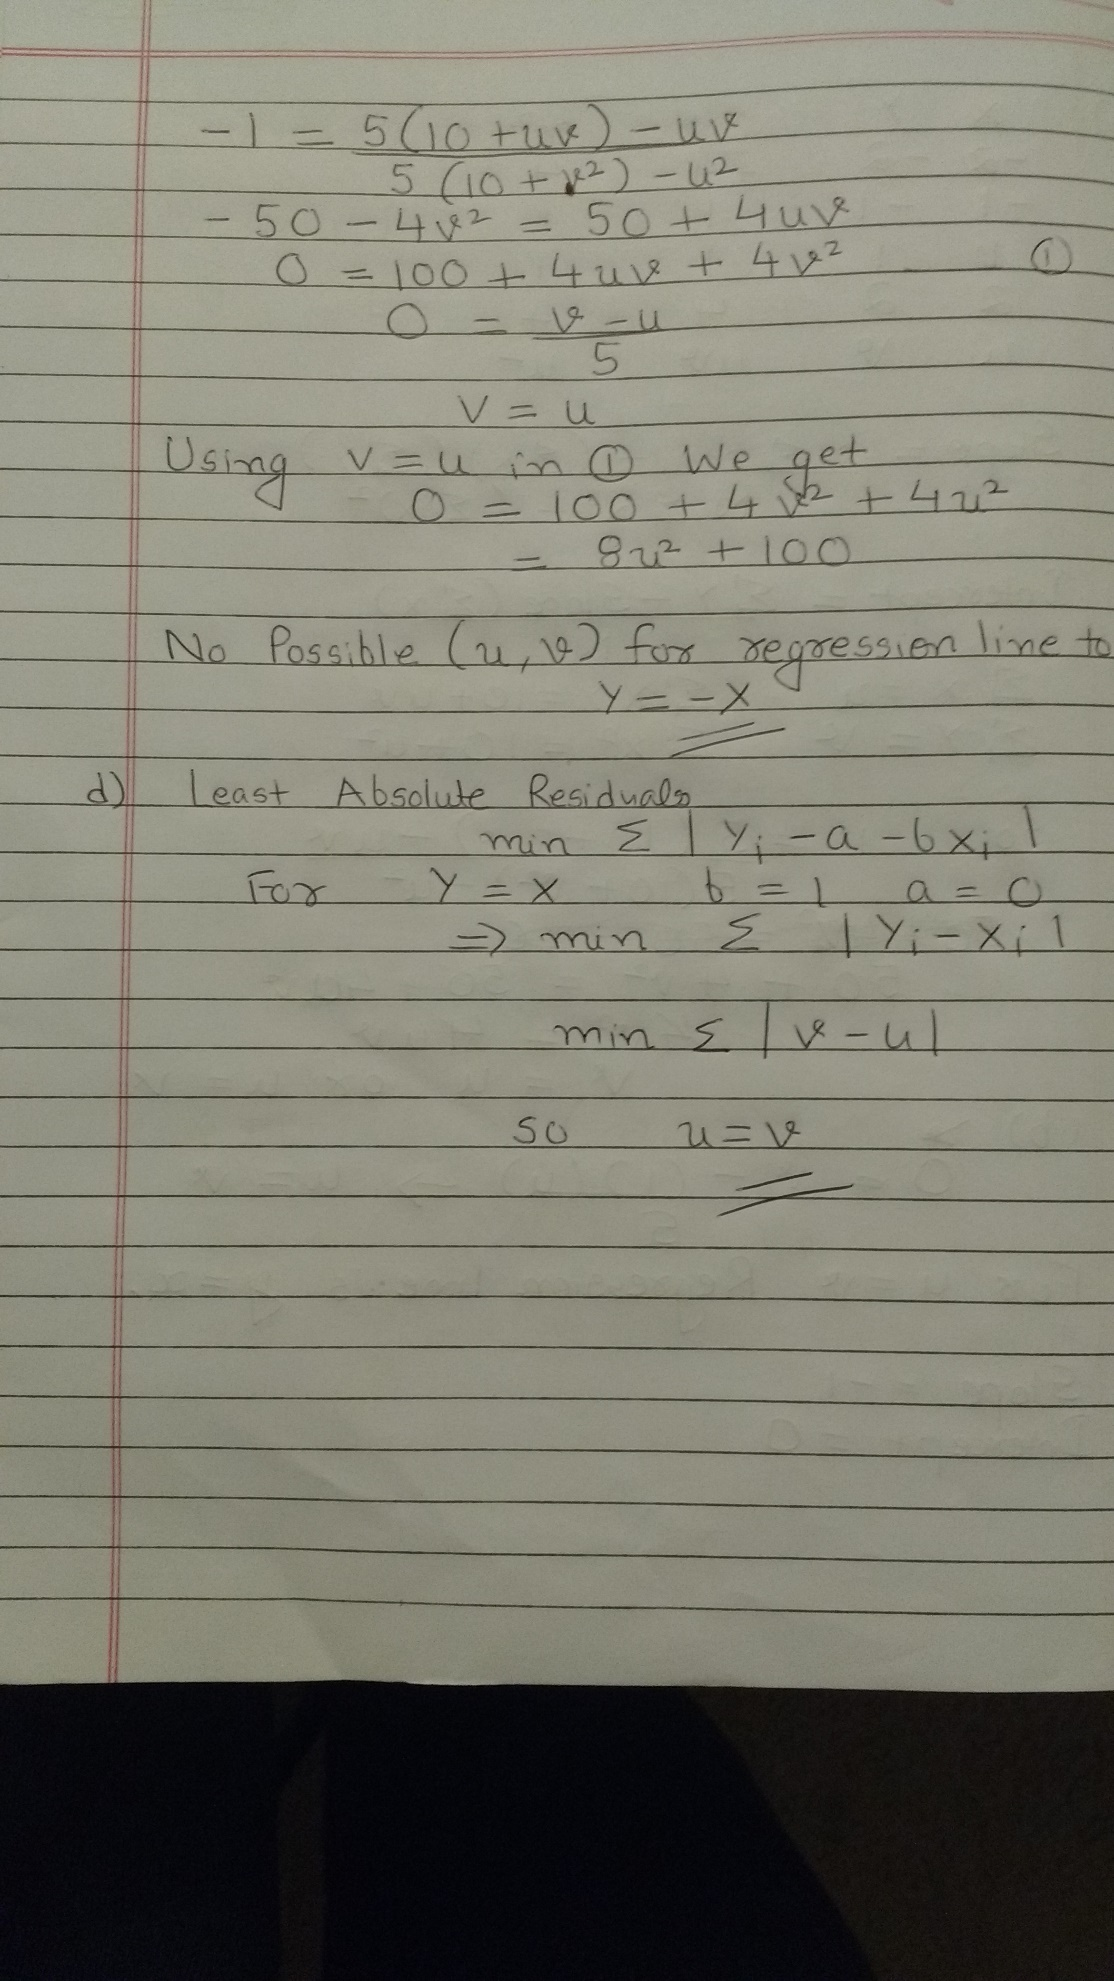 -1 = 5(10 + uv) - uv
5(10 + v²) - u²
-50 - 4v² = 50 + 4uv
0 = 100 + 4uv + 4v² ①
0 = v - u
5
V = u
Using v = u in ① We get
0 = 100 + 4v² + 4u²
= 8u² + 100
No Possible (u, v) for regression line to
Y = -X
d) Least Absolute Residuals
min Σ | Yi - a - bxi |
For Y = X b = 1 a = 0
⇒ min Σ | Yi - Xi |
min Σ | v - u |
so u = v